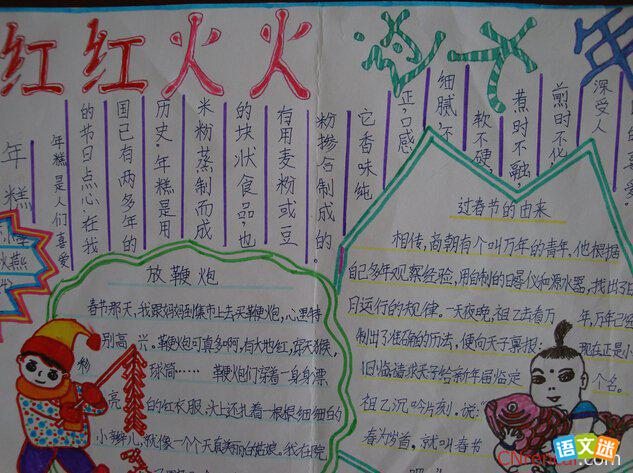 红红火火过大年
年糕
年糕是人们喜爱
的节日点心.在我
国已有两多年的
历史.年糕是用
米粉蒸制而成
的块状食品,也
有用麦粉或豆
粉掺合制成的.
它香味纯
正,口感
细腻,不
软不硬,
煮时不融,
煎时不化
深受人
放鞭炮
春节那天,我跟妈妈到集市上去买鞭炮,心里特
别高兴。鞭炮可真多啊,有大地红,窜天猴,
彩球筒…… 鞭炮们穿着一身身漂
亮的红长服.头上还扎着一根根细细的
小辫儿,就像一个个天真的姑娘.我在院
过春节的由来
相传,商朝有个叫万年的青年,他根据
自己多年观察经验,用自制的日晷仪和漏水器,找出了日
月运行的规律。一天夜晚,祖乙去看万年,万年已经
制出了准确的历法,便向天子奏报: 现在正是小
旧临请求天子给新年届临定个名。
祖乙沉吟片刻.说:
春为岁首.就叫春节
语文迷